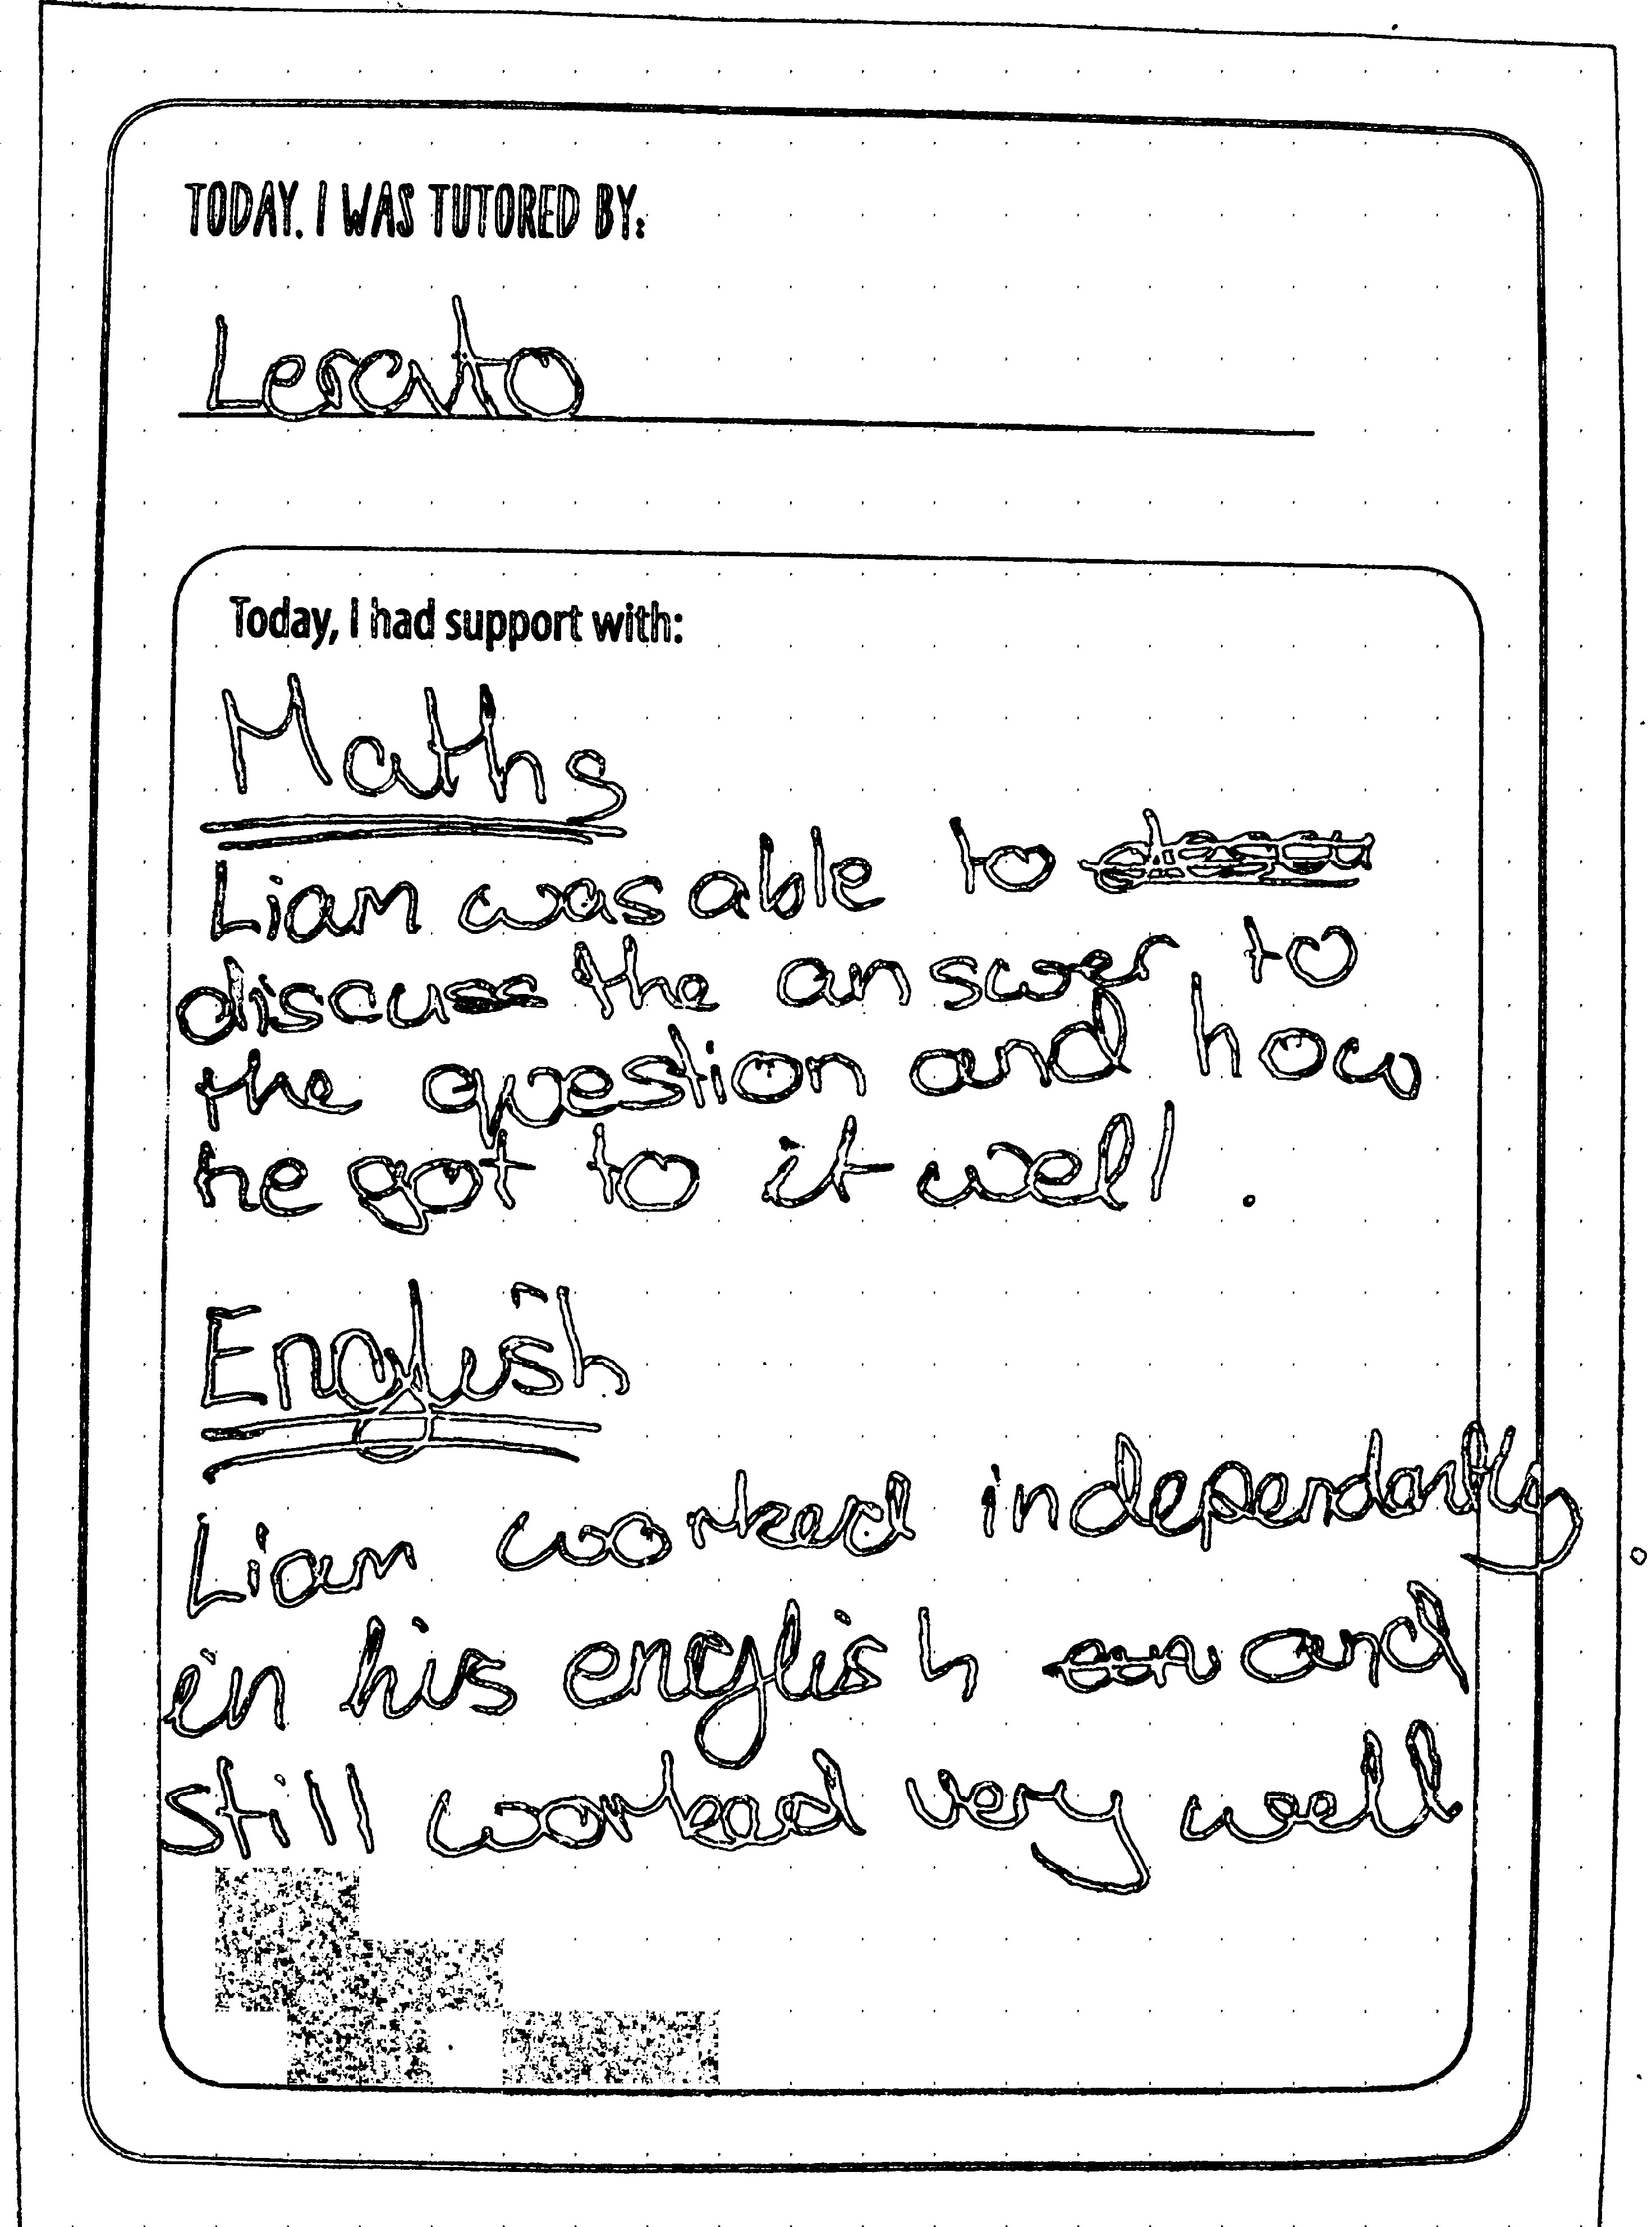 TODAY, I WAS TUTORED BY:
Lerato
Today, I had support with:
Maths
Liam was able to
discuss the answer to
the question and how
he got to it well .
English
Liam worked independantly
in his english and
still worked very well